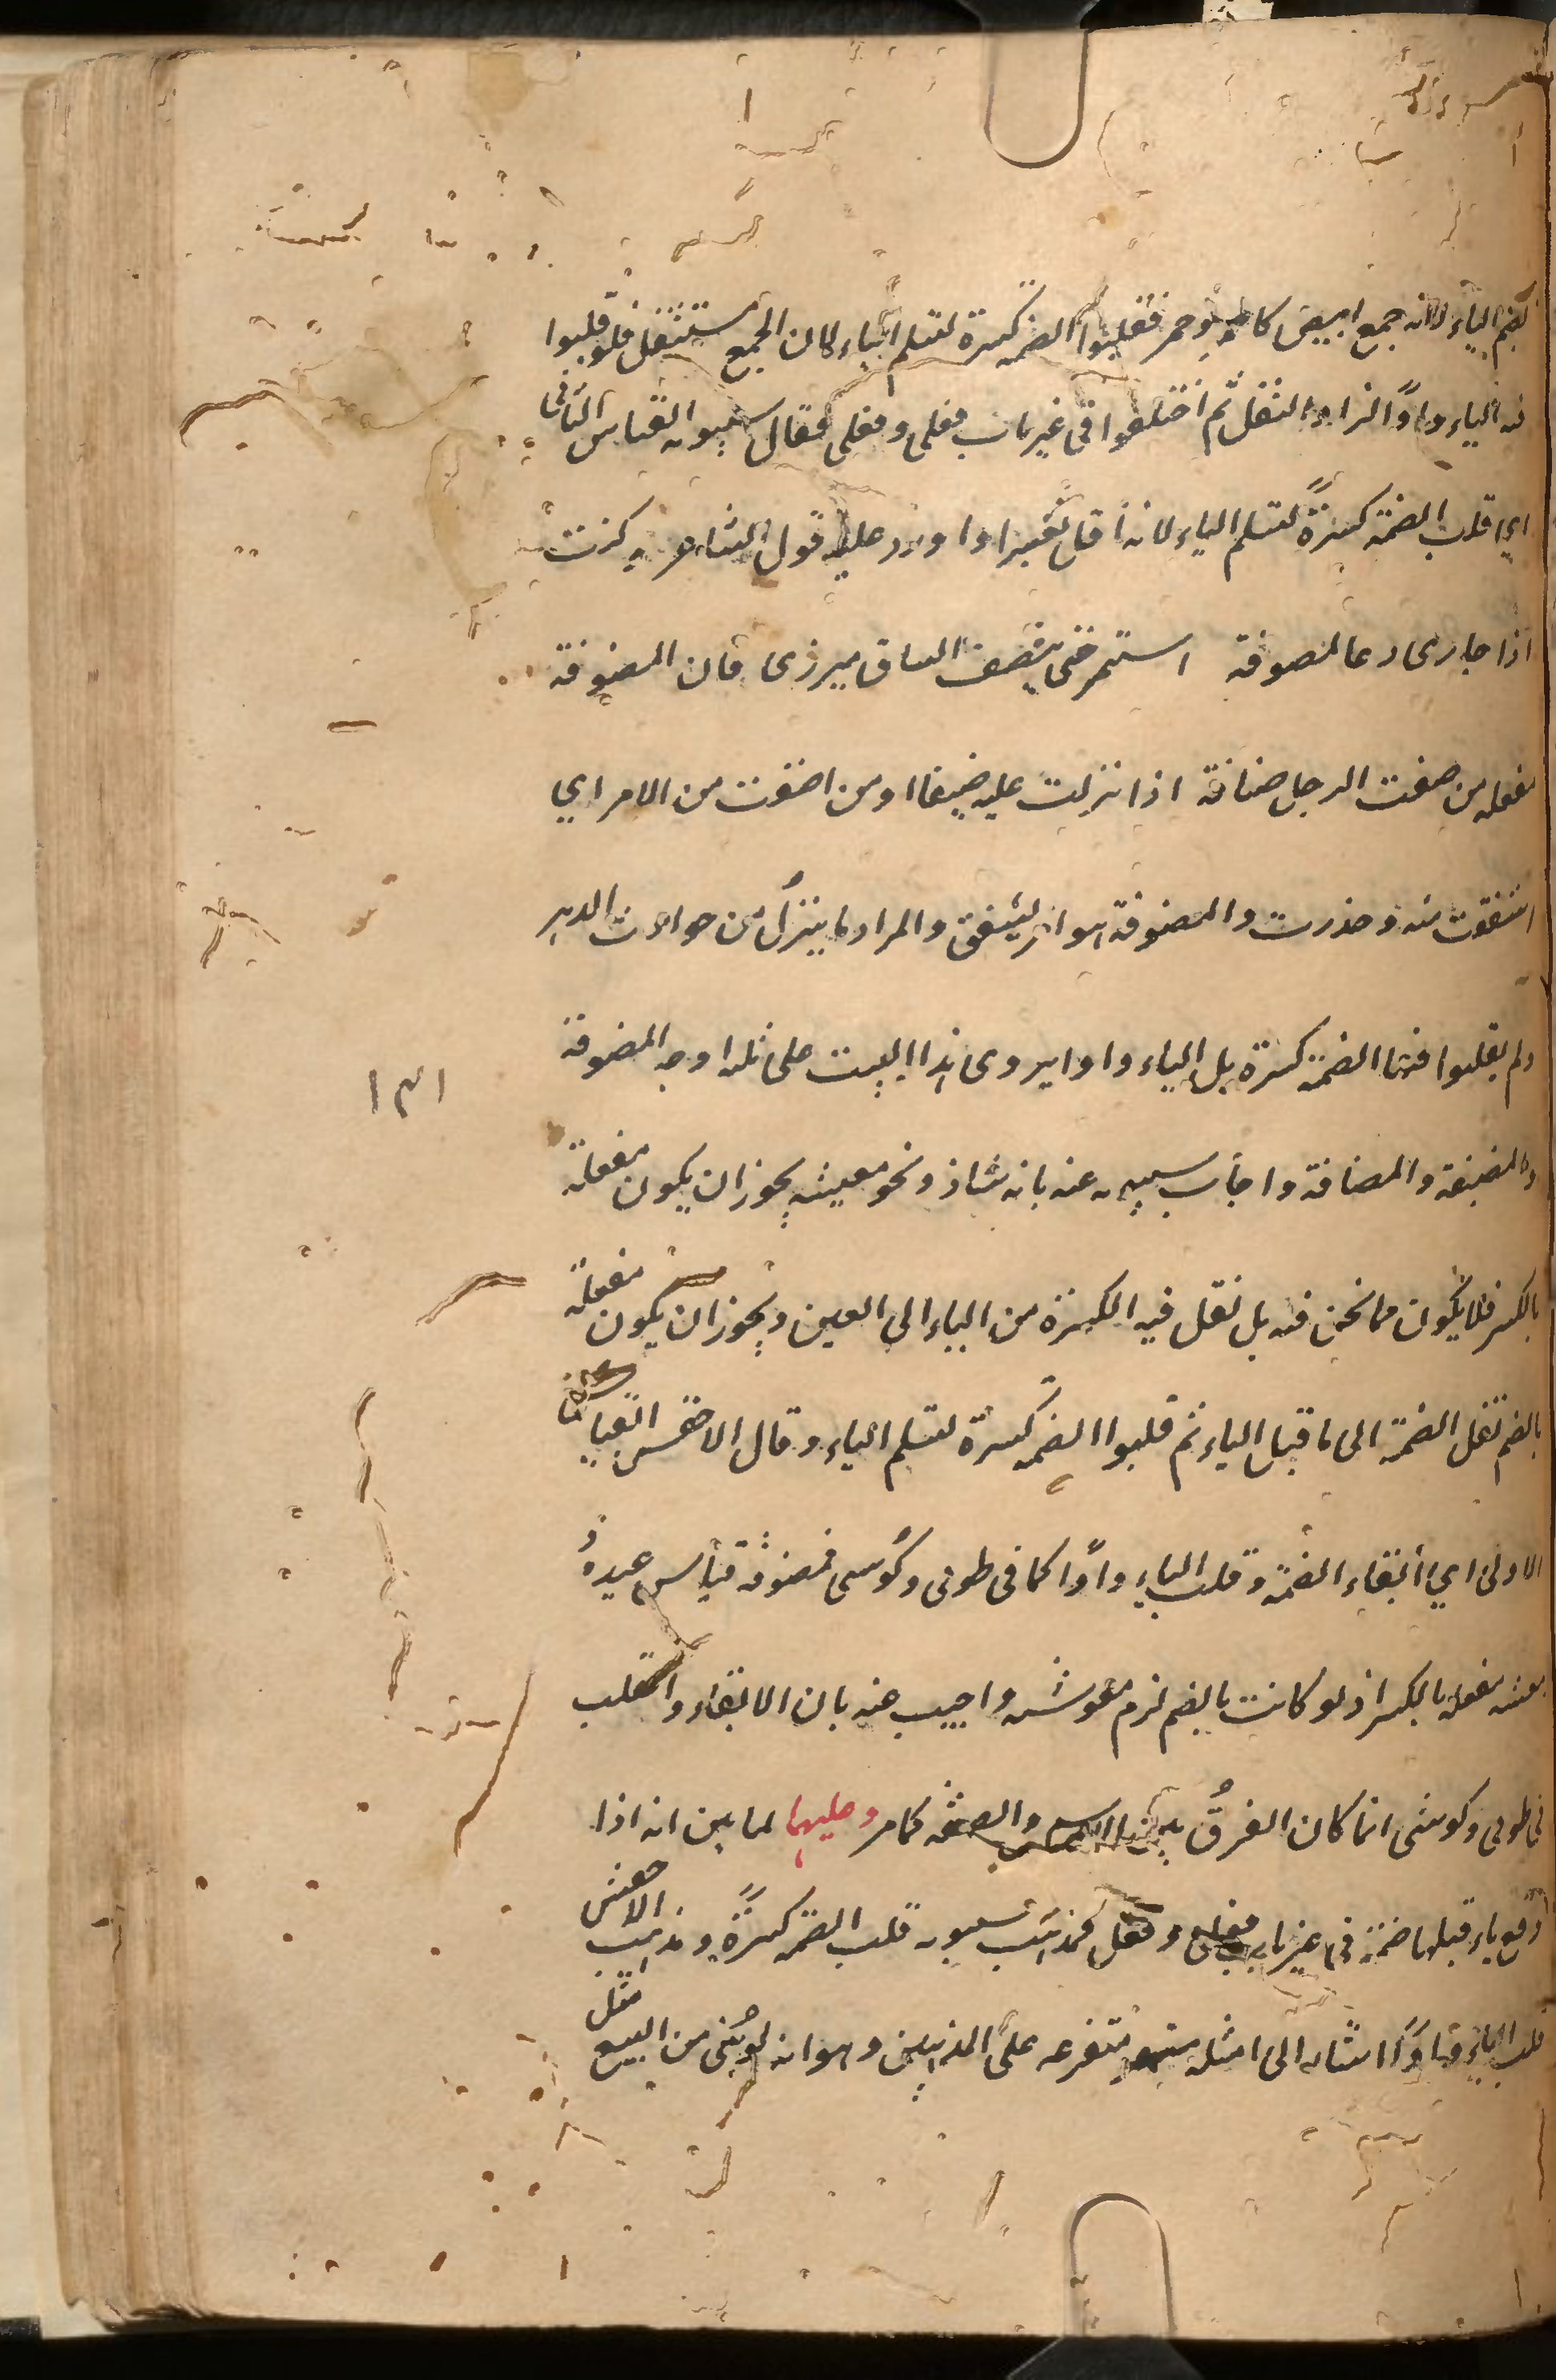 بضم الياء لانه جمع ابيض كاحمر وحمر فقلبوا الضمة كسرة لتسلم الياء لان الجمع مستثقل فلو قلبوا
فيه الياء واوًا لزاد الثقل ثم اختلفوا فى غير باب فعلى وفعلى فقال سيبويه القياس الثانى
اى قلب الضمة كسرةً لتسلم الياء لانه اقل تغييرا واورد عليه قول الشاعر وكنت
اذا جارى دعا لمضوفة اشمر حتى ينصف الساق ميزرى فان المضوفة
مفعلة من ضفت الرجل ضيافة اذا نزلت عليه ضيفا او من اضفت من الامر اى
اشفقت منه وحذرت والمضوفة امر يشفق والمراد ما ينزل من حوادث الدهر
ولم يقلبوا فيها الضمة كسرة بل الياء واوا يروى هذا البيت على ثلثة اوجه المضوفة
والمضيفة والمضافة واجاب سيبويه عنه بانه شاذ ونحو معيشة يجوز ان يكون مفعلة
بالكسر فلا يكون مما نحن فيه بل نقل فيه الكسرة من الياء الى العين ويجوز ان يكون مفعلة
بالضم نقل الضمة الى ما قبل الياء ثم قلبوا الضمة كسرة لتسلم الياء وقال الاخفش القياس
الاولى اى ابقاء الضمة وقلب الياء واوًا كما فى طوبى وكوسى فمضوفة قياس عنده
معيشة مفعلة بالكسر اذ لو كانت بالضم لزم معوشة واجيب عنه بان الابقاء والقلب
فى طوبى وكوسى انما كان الفرق بين الاسم والصفة كما مر وعليهما لما بين انه اذا
وقع ياء قبلها ضمة فى غير باب فعلى وفعل فمذهب سيبويه قلب الضمة كسرةً ومذهب الاخفش
قلب الياء واوًا اشار الى امثلة متفرعة على المذهبين وهو انه لو بُنى من البيع مثل
١٣١